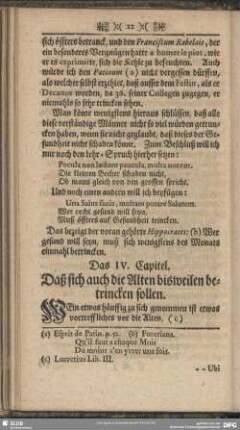 22
sich öffters betranck, und den Franciscum Rabelais, der
ein besonderes Vergnügen hatte a humer le piot, wie
er es exprimirte, sich die Kehle zu befeuchten. Auch
würde ich den Patinum (a) nicht vergessen dürffen,
als welcher selbst erzehlet, daß ausser dem Festin, als er
Decanus worden, da 36. seiner Collegen zugegen, er
niemahls so sehr trincken sehen.
Man könte wenigstens hieraus schlüssen, daß alle
diese verständige Männer nicht so viel würden getrun-
cken haben, wenn sie nicht geglaubt, daß dieses der Ge-
sundheit nicht schaden könne. Zum Beschluß will ich
nur noch den Lehr-Spruch hierher setzen:
Pocula non laedunt paucula, multa nocent.
Die kleinen Becher schaden nicht,
Ob manä gleich von den grossen spricht.
Und noch einen andern will ich beyfügen:
Una Salus sanis, multam potare Salutem.
Wer recht gesund will seyn,
Muß öffters auf Gesundheit trincken.
Das bezeigt der voran gehörte Hippocrates: (b) Wer
gesund will seyn, muß sich wenigstens des Monats
einmahl betrincken.
Das IV. Capitel.
Daß sich auch die Alten bisweilen be-
trincken sollen.
Wein etwas häuffig zu sich genommen ist etwas
vortreffliches vor die Alten. (c)
(a) Esprit de Patin. p. 52. (b) Fureriana.
Qu'il faut a chaque Mois
Du moins s'en yvrer une fois.
(c) Lucretius Lib. III.
Ubi